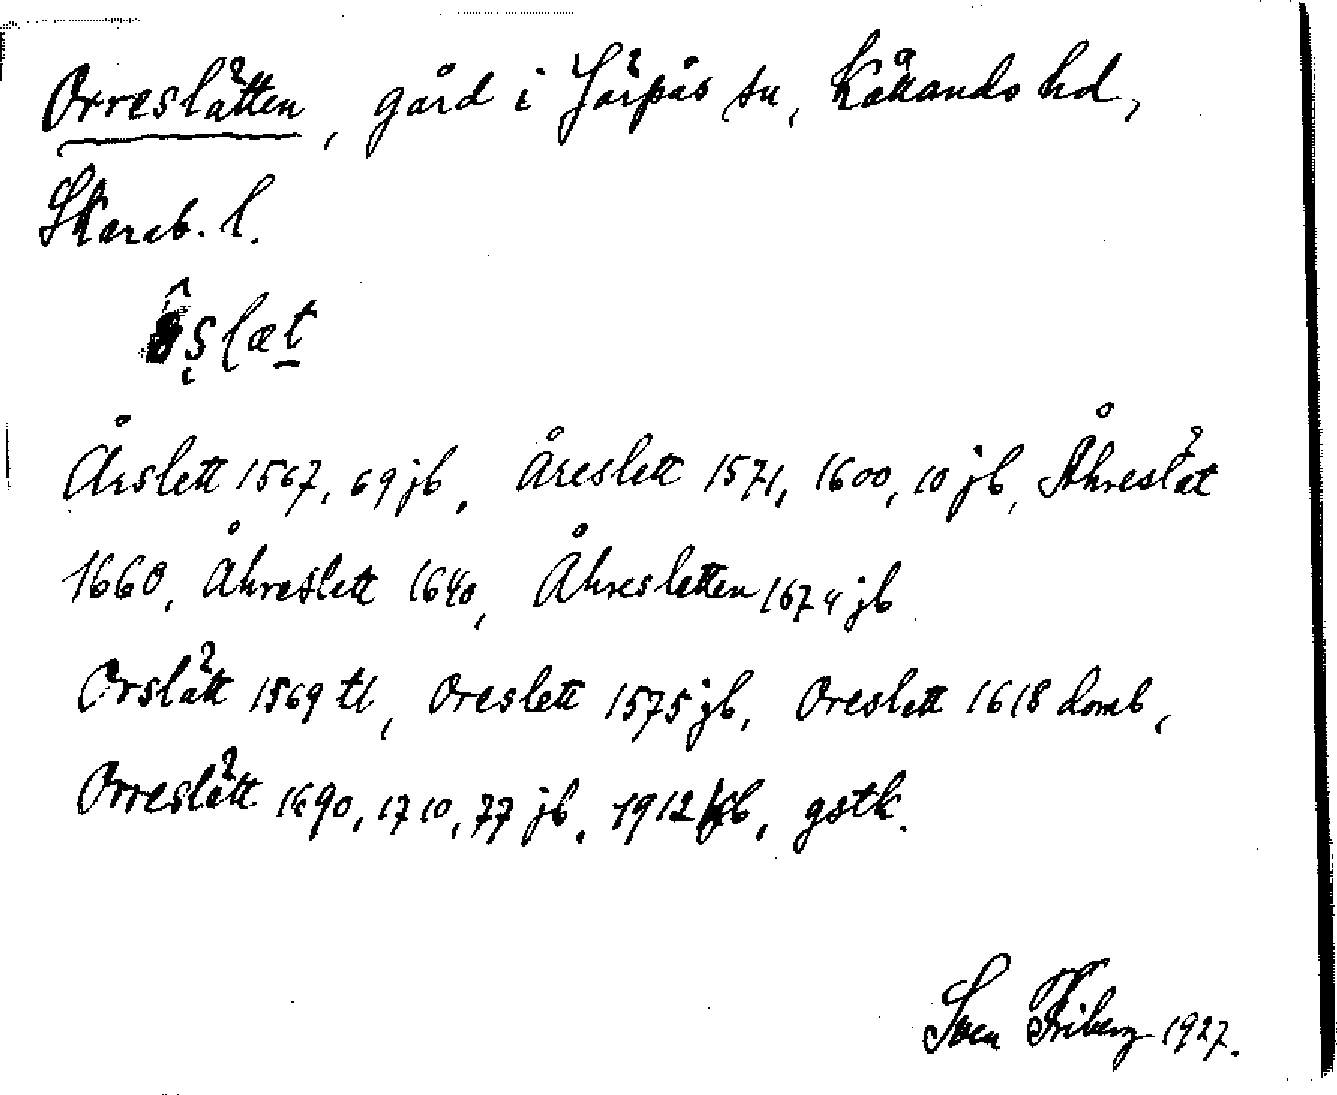 Orreslätten, gård i Järpås sn, Kållands hd,
Skarab. l.
slæt
Årslett 1567, 69 jb, Åreslett 1571, 1600, 10 jb, Åhreslät
1660, Åhreslett 1640, Åhresletten 1674 jb
Orslätt 1569 tl, Oreslett 1575 jb, Oreslett 1618 domb,
Orreslätt 1690, 1710, 77 jb, 1912 jb, gstk.
Sven Friberg 1927.